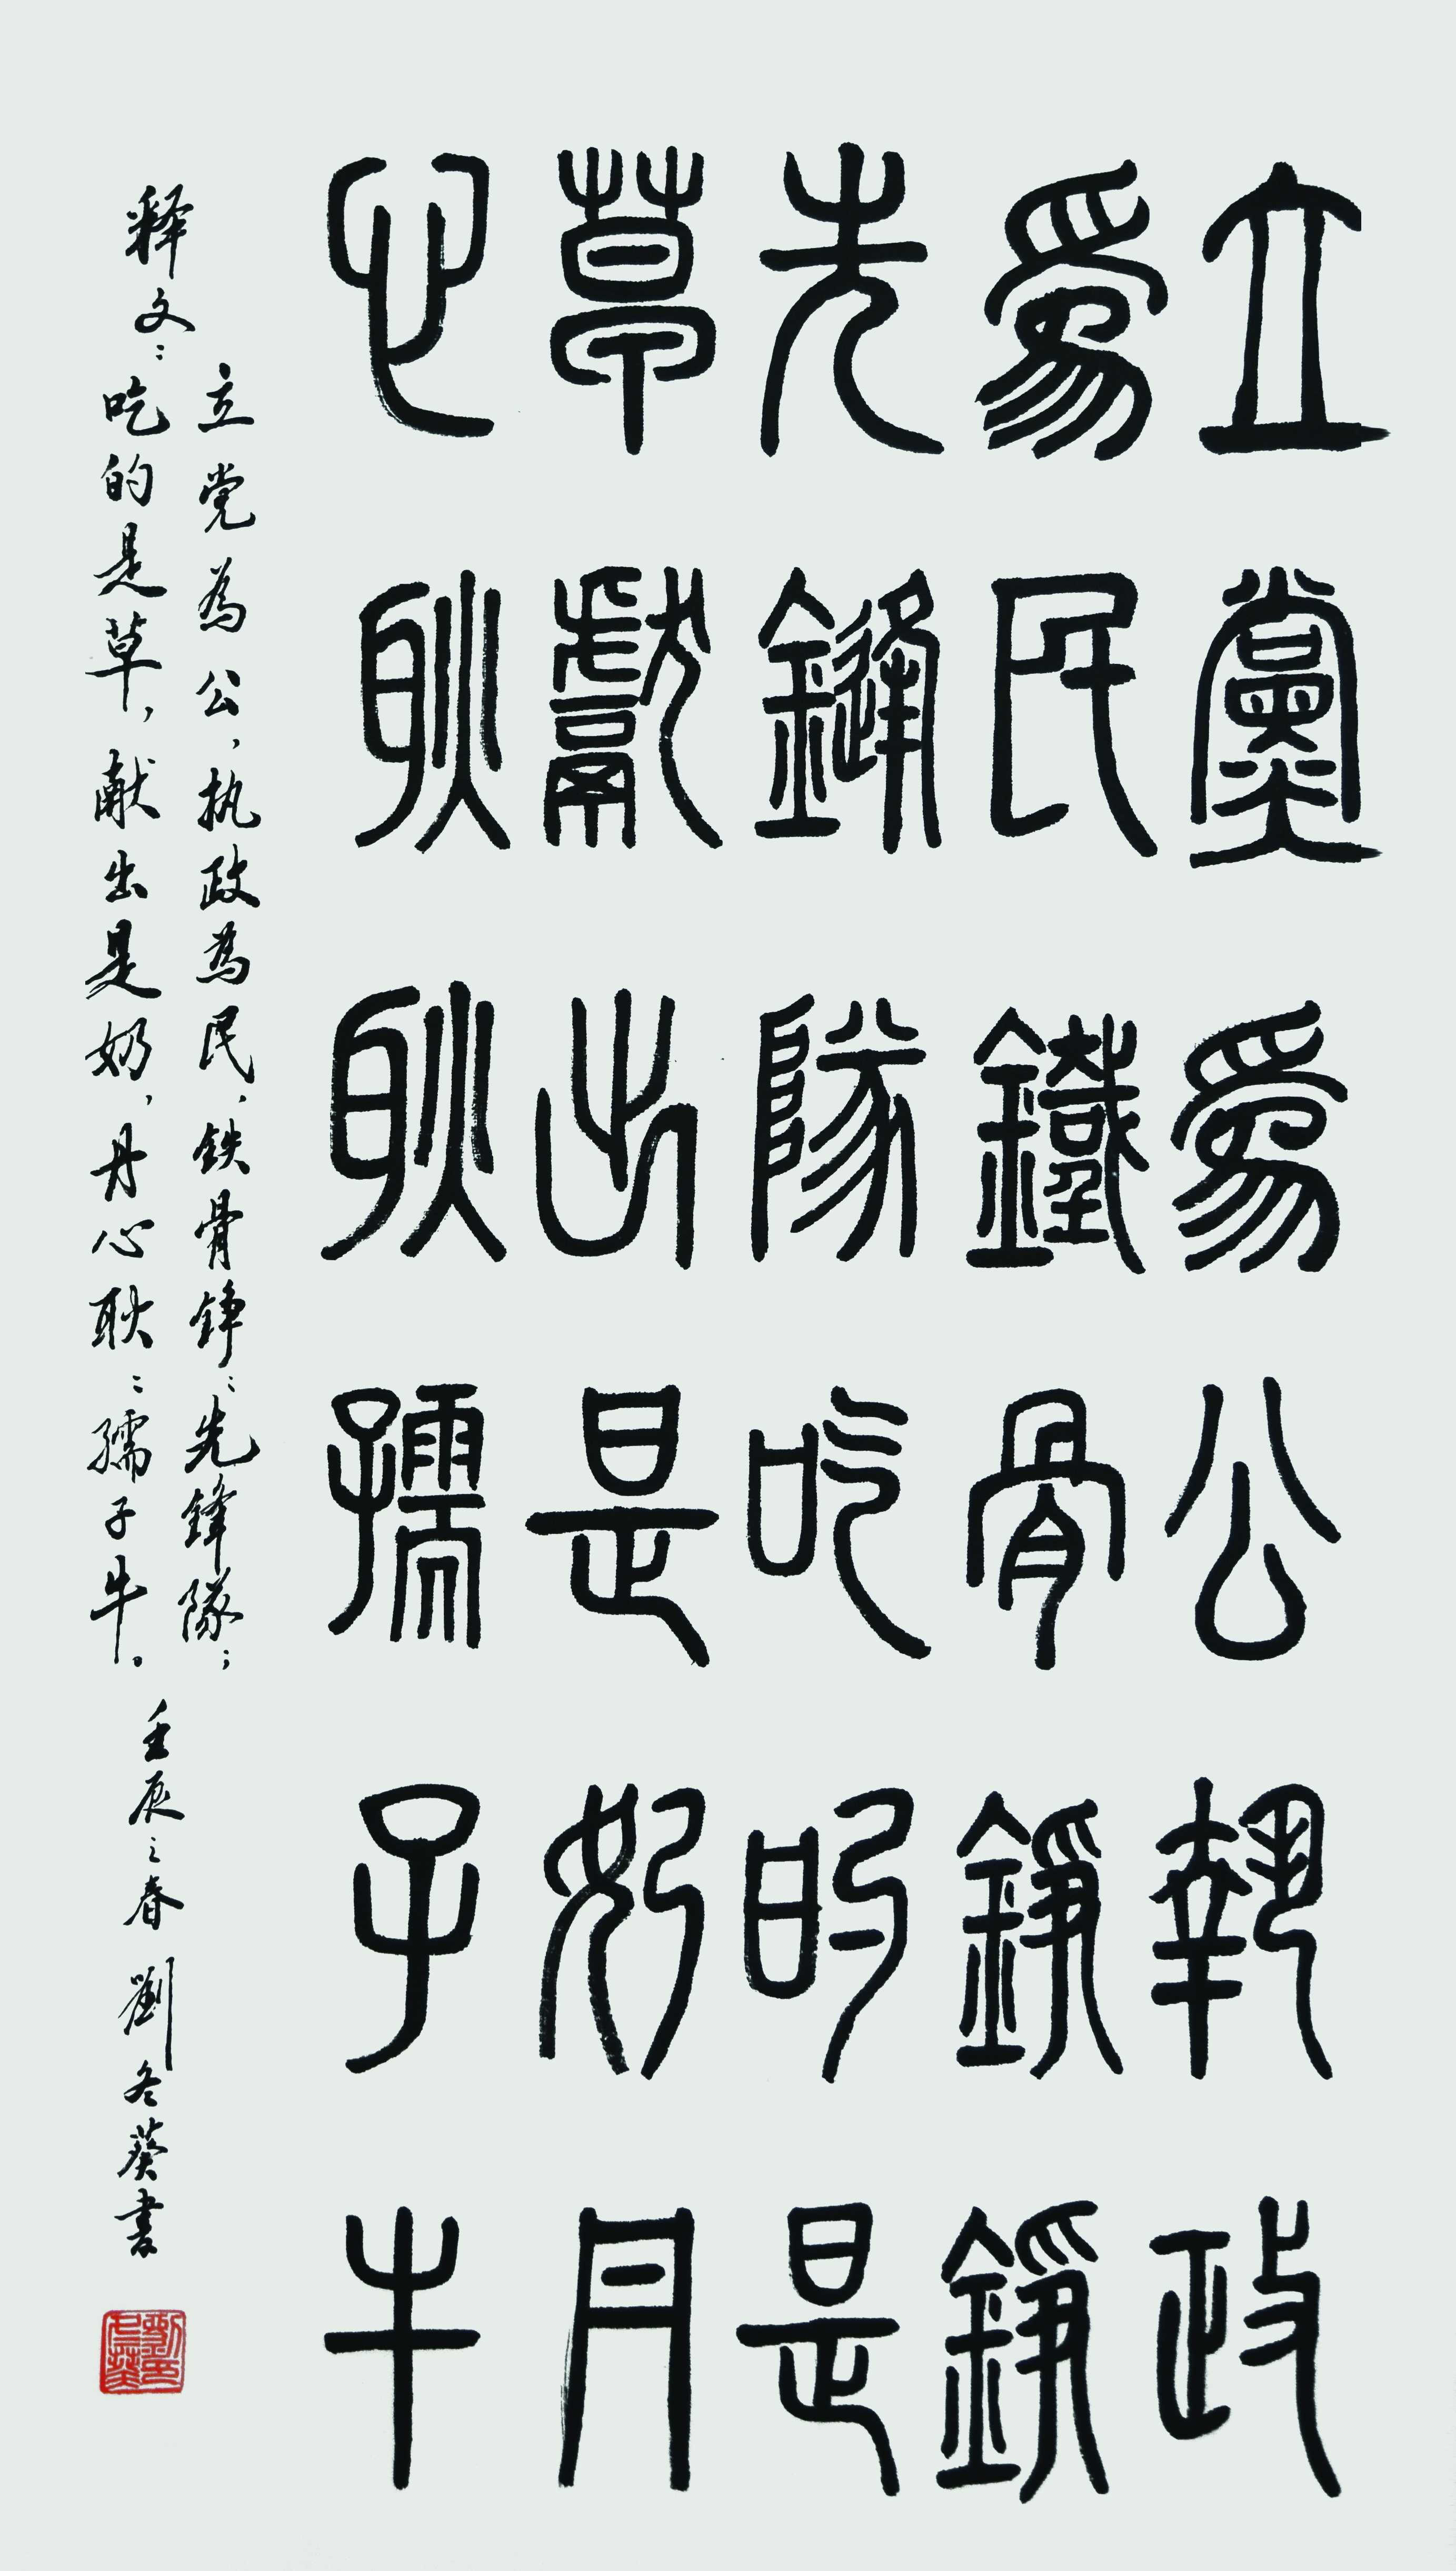 立黨爲公執政
爲民鐵骨錚錚
先鋒隊吃的是
草獻出是奶丹
心耿耿孺子牛
释文：
立党為公，执政為民，铁骨铮〻先鋒隊；
吃的是草，献出是奶，丹心耿〻孺子牛。
壬辰之春 劉冬葵書